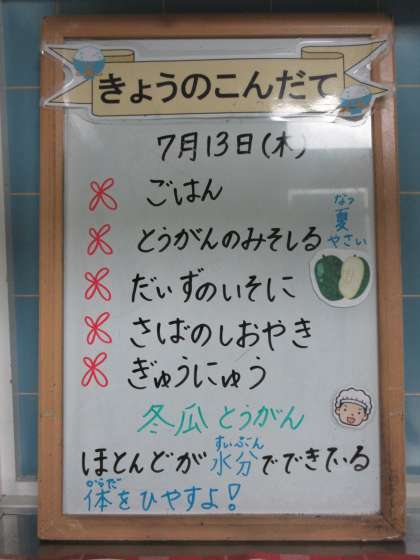 きょうのこんだて
7月13日(木)
ごはん
とうがんのみそしる
なつ
夏
やさい
だいずのいそに
さばのしおやき
ぎゅうにゅう
冬瓜 とうがん
すいぶん
ほとんどが水分でできている
からだ
体をひやすよ!